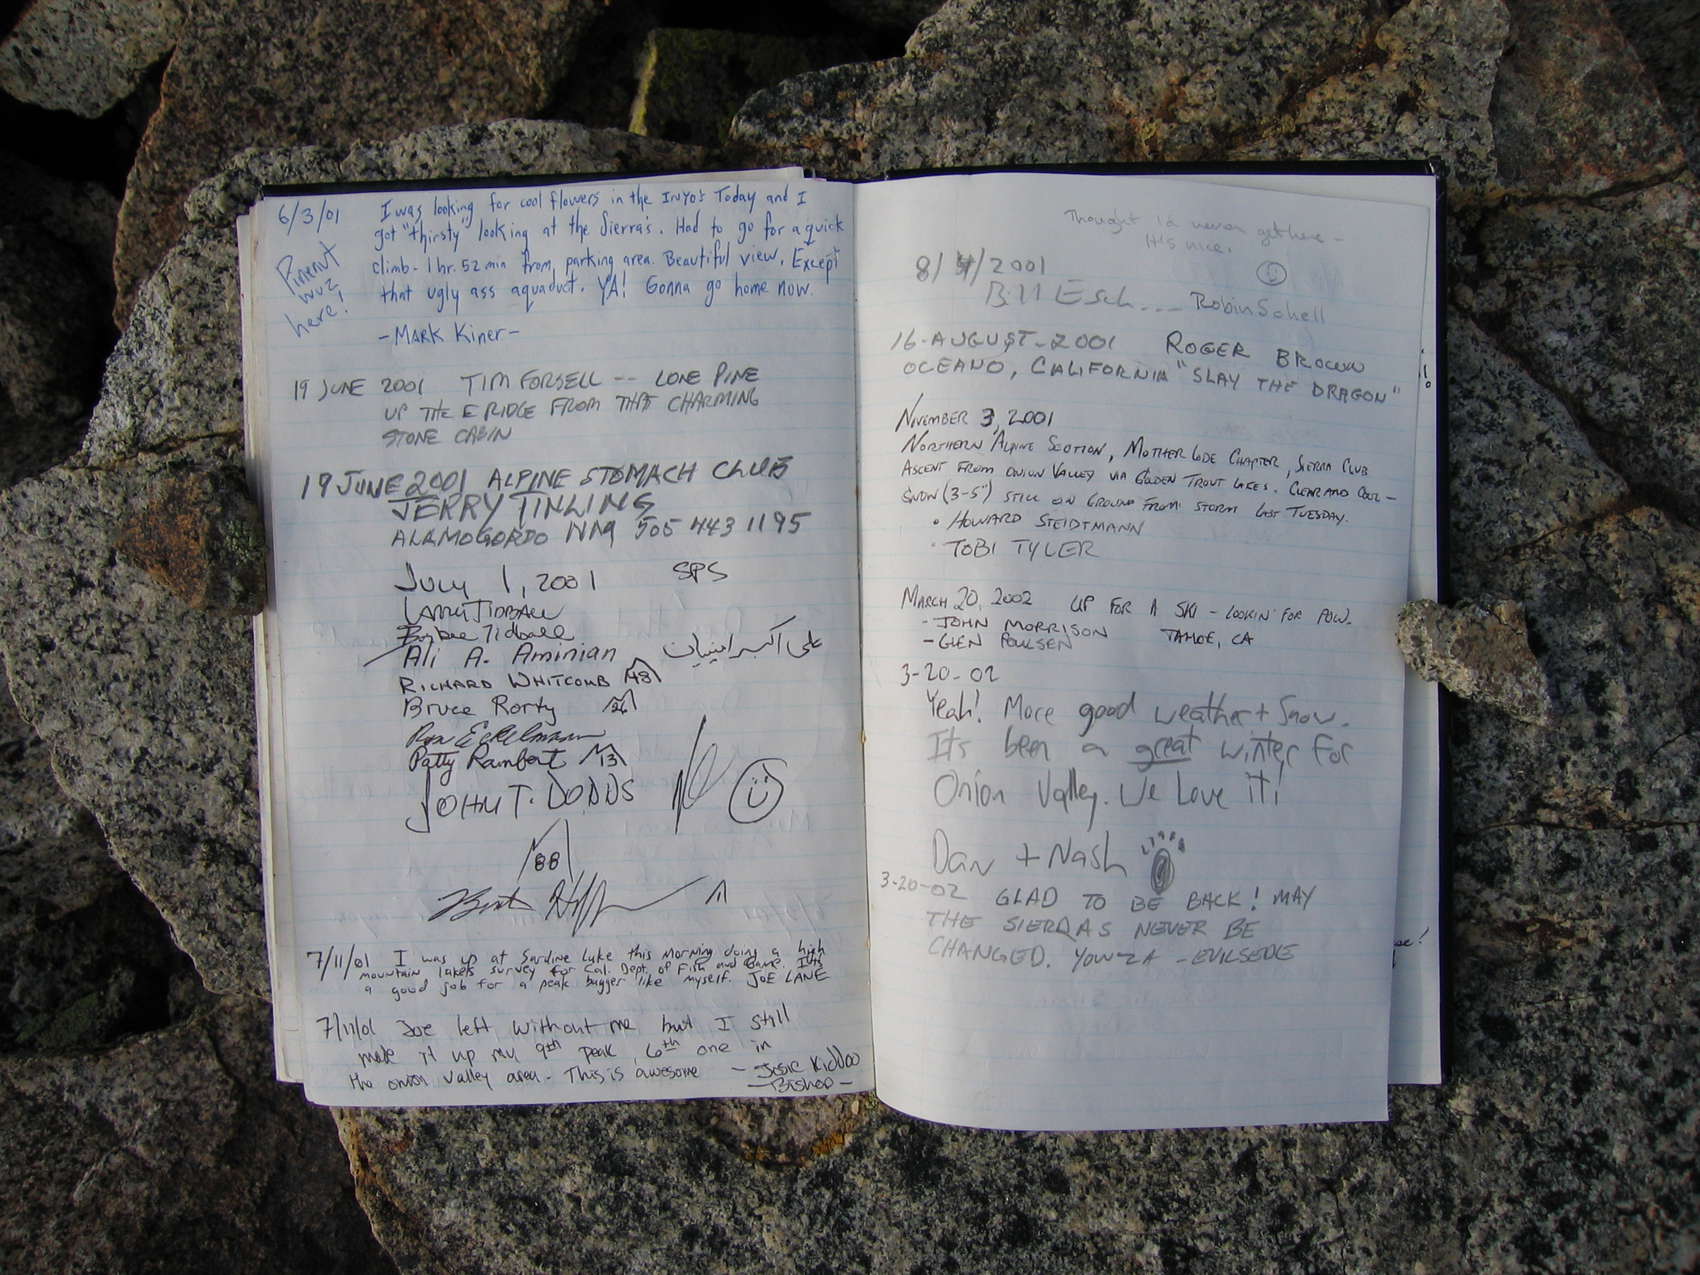 6/3/01 I was looking for cool flowers in the Inyo's Today and I
got "thirsty" looking at the Sierra's. Had to go for a quick
climb - 1 hr. 52 min from parking area. Beautiful view. Except
that ugly ass aquaduct. YA! Gonna go home now.
- Mark Kiner -
Pinenut
wuz
here!
19 JUNE 2001 TIM FORSELL -- LONE PINE
UP THE E RIDGE FROM THAT CHARMING
STONE CABIN
19 JUNE 2001 ALPINE STOMACH CLUB
JERRY TINLING
ALAMOGORDO NM 505 443 1195
July 1, 2001 SPS
LARRY TIDBALL
Barbee Tidball
Ali A. Aminian علی اکبر امینیان
RICHARD WHITCOMB 48
Bruce Rorty 26
Ron Eckelmann
Patty Rambert 13
JOHN T. DODDS
88
7/11/01 I was up at Sardine Lake this morning doing a high
mountain lakes survey for Cal. Dept. of Fish and Game. It's
a good job for a peak bagger like myself. JOE LANE
7/11/01 Joe left without me but I still
made it up my 9th peak, 6th one in
the onion valley area - This is awesome - Josie Kiddoo
- Bishop -
Thought I'd never get here -
It's nice.
8/4/2001
Bill Esch --- Robin Schell
16-AUGUST-2001 ROGER BROWN
OCEANO, CALIFORNIA "SLAY THE DRAGON"
NOVEMBER 3, 2001
NORTHERN ALPINE SECTION, MOTHER LODE CHAPTER, SIERRA CLUB
ASCENT FROM ONION VALLEY VIA GOLDEN TROUT LAKES. CLEAR AND COOL -
SNOW (3-5") STILL ON GROUND FROM STORM LAST TUESDAY.
• HOWARD STEIDTMANN
• TOBI TYLER
MARCH 20, 2002 UP FOR A SKI - LOOKIN' FOR POW.
- JOHN MORRISON TAHOE, CA
- GLEN POULSEN
3-20-02
Yeah! More good weather + Snow.
It's been a great winter for
Onion Valley. We Love it!
Dan + Nash
3-20-02 GLAD TO BE BACK! MAY
THE SIERRAS NEVER BE
CHANGED. YOWZA - EVILSEDE